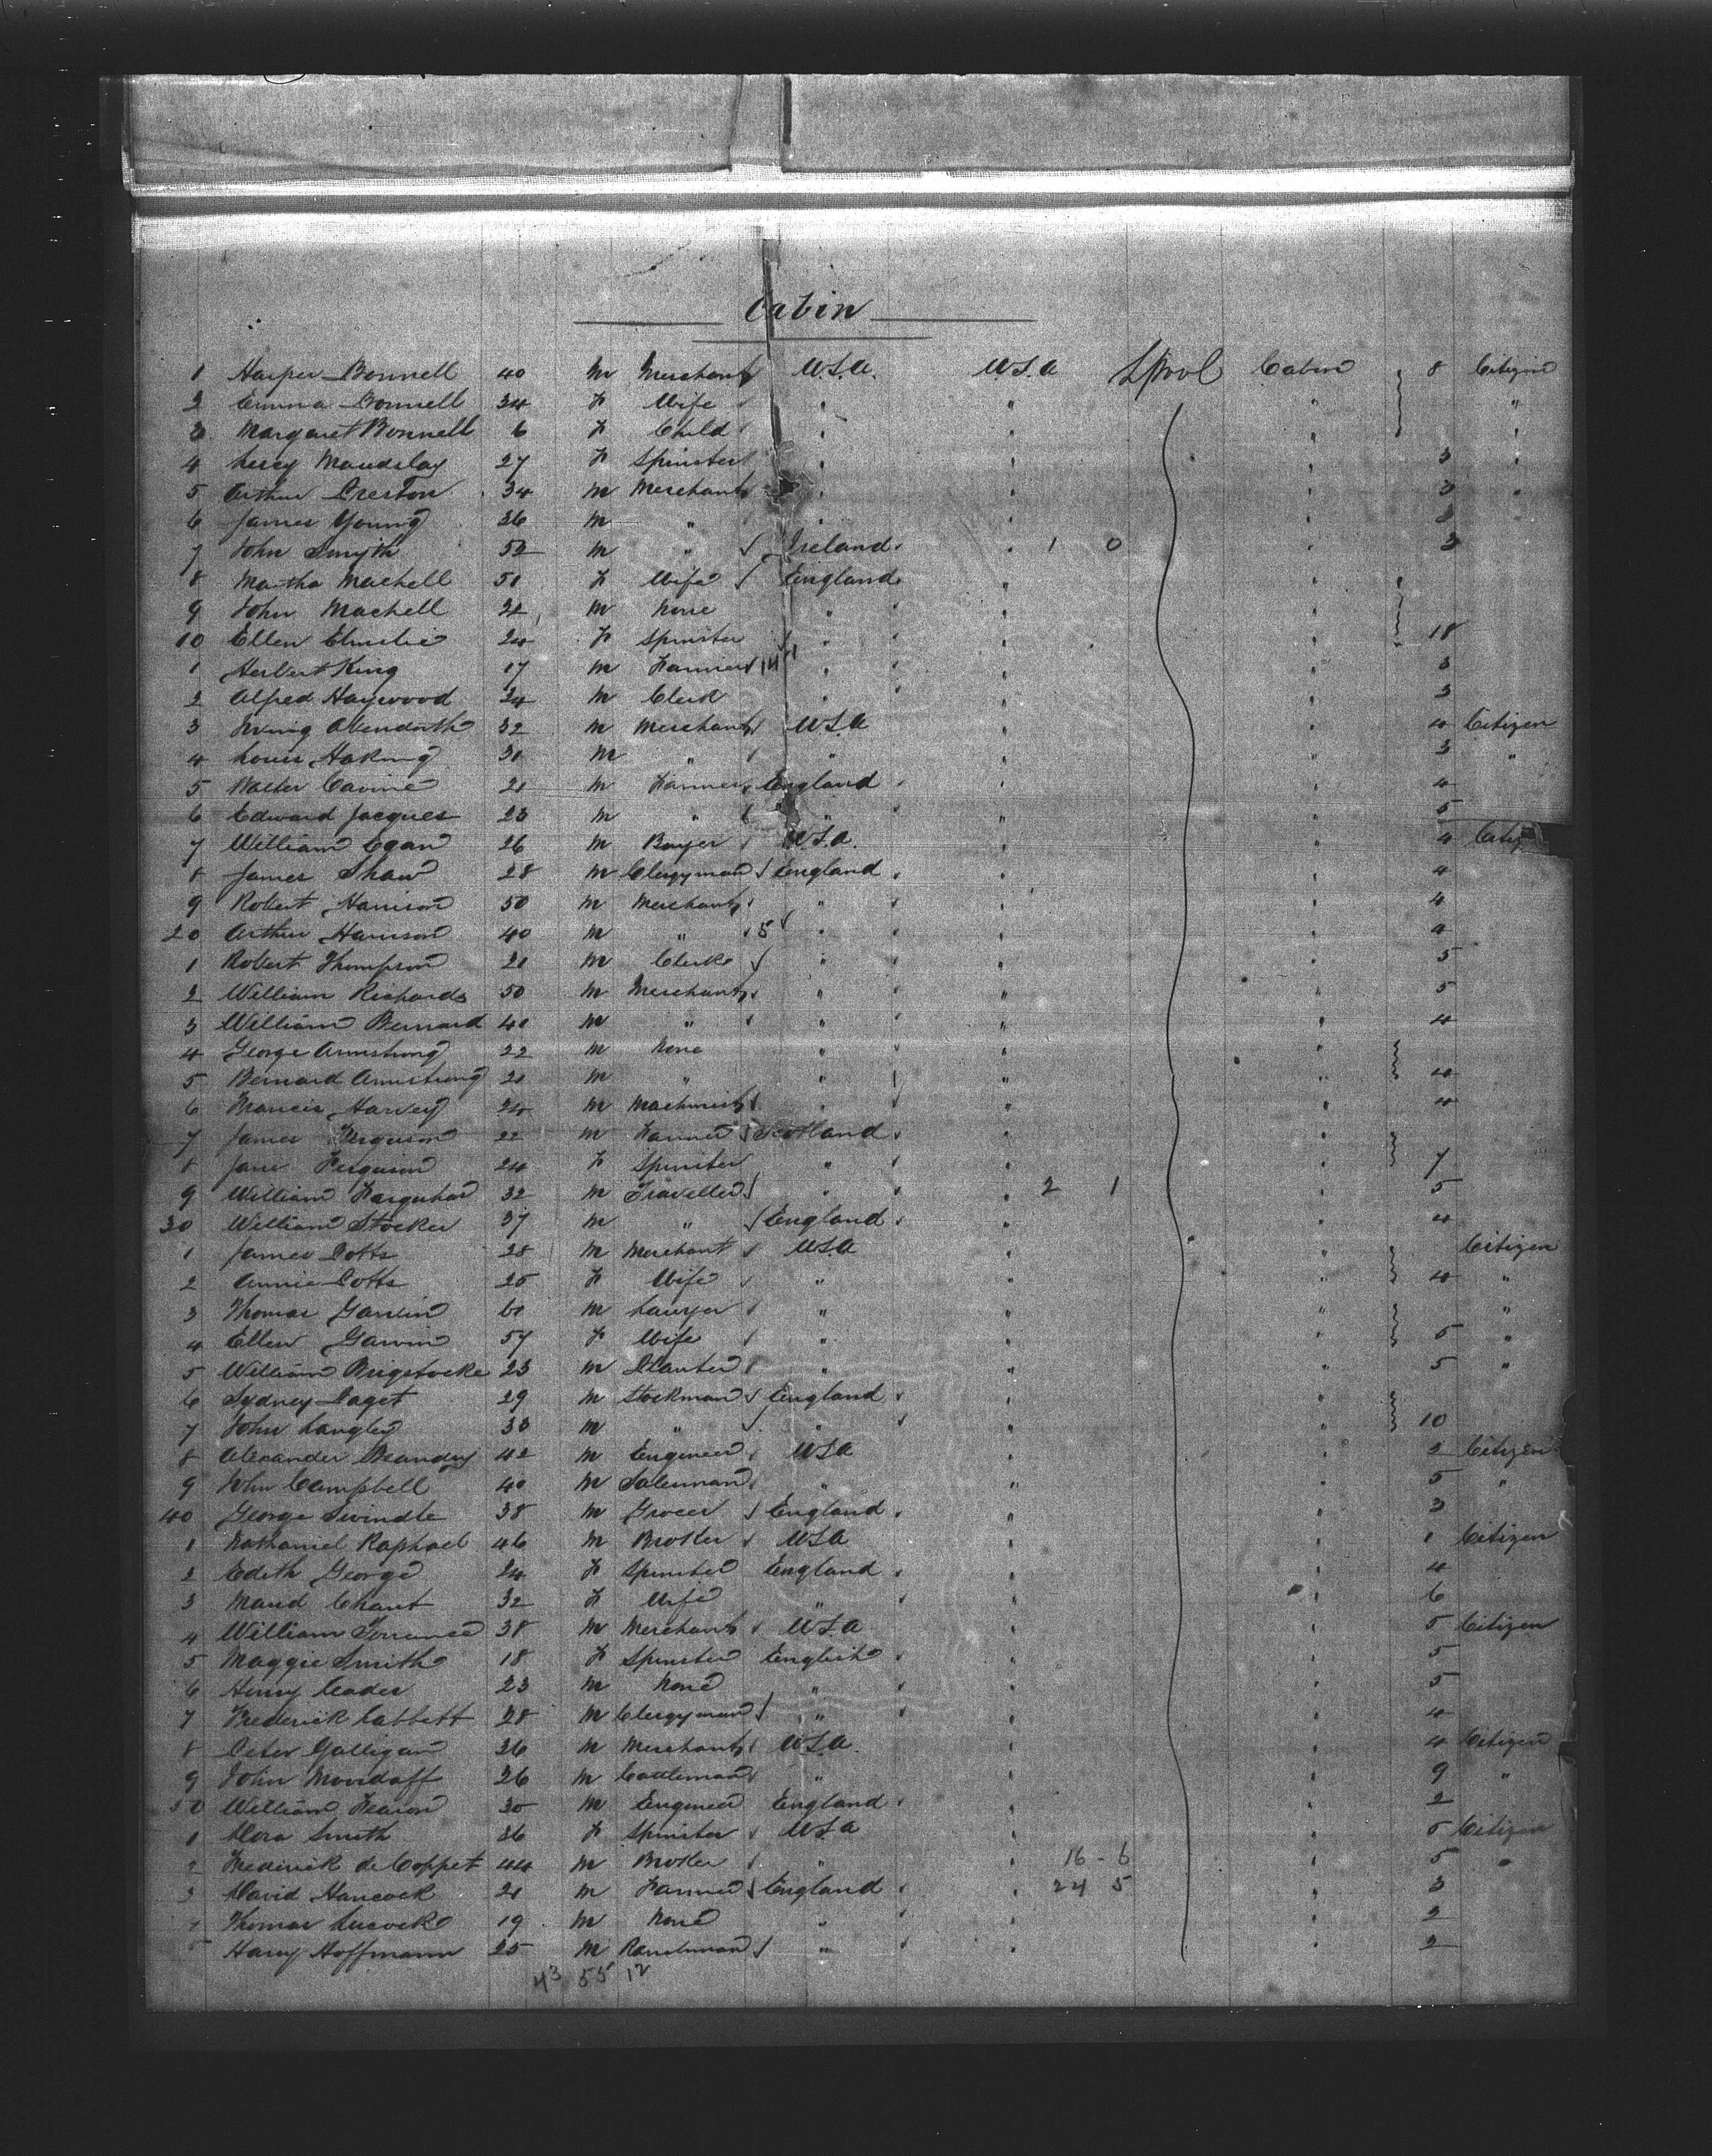 Cabin
1 Harper Bonnell 40 M Merchant U.S.A. U.S.A L'pool Cabin 8 Citizen
2 Emma Bonnell 34 F Wife " " " "
3 Margaret Bonnell 6 F Child " " " "
4 Lucy Maudslay 27 F Spinster " " " 3 "
5 Arthur Preston 34 M Merchant " " " 3 "
6 James Young 36 M " " " " 3
7 John Smyth 52 M " Ireland " 1 0 " 3
8 Martha Machell 50 F Wife England " "
9 John Machell 22 M None " " "
10 Ellen Elmslie 24 F Spinster " " " 18
1 Herbert King 17 M Farmer " " " 3
2 Alfred Haywood 24 M Clerk " " " 3
3 Irving 32 M Merchant U.S.A " " 4 Citizen
4 Louis 30 M " " " " 3 "
5 Walter 21 M Farmer England " " 4
6 Edward Jacques 23 M " " " " 5
7 William Egan 26 M Buyer U.S.A. " " 4
8 James Shaw 28 M Clergyman England " " 4
9 Robert Harrison 50 M Merchant " " " 4
20 Arthur Harrison 40 M " 5 " " " 4
1 Robert Thompson 21 M Clerk " " " 5
2 William Richards 50 M Merchant " " " 5
3 William Bernard 40 M " " " " 4
4 George Armstrong 22 M None " " "
5 Bernard Armstrong 20 M " " " " 4
6 Francis Harvey 24 M Machinist " " " 4
7 James Ferguson 22 M Farmer Scotland " "
8 Jane Ferguson 24 F Spinster " " " 7
9 William Farquhar 32 M Traveller " " 2 1 " 5
30 William Stocker 37 M " England " " 4
1 James Potts 28 M Merchant U.S.A " " Citizen
2 Annie Potts 25 F Wife " " " 4 "
3 Thomas Garvin 60 M Lawyer " " " "
4 Ellen Garvin 57 F Wife " " " 5 "
5 William Brigstocke 23 M Planter " " " 5 "
6 Sydney Paget 29 M Stockman England " "
7 John Langley 33 M " " " " 10
8 Alexander 42 M Engineer U.S.A " " 2 Citizen
9 John Campbell 40 M Salesman " " " 5 "
40 George Swindle 38 M Grocer England " " 3
1 Nathaniel Raphael 46 M Broker U.S.A " " 1 Citizen
2 Edith George 24 F Spinster England " " 4
3 Maud Chant 32 F Wife " " " 6
4 William Torrance 38 M Merchant U.S.A " " 5 Citizen
5 Maggie Smith 18 F Spinster English " " 5
6 Henry Leader 23 M None " " " 5
7 Frederick Cabbett 28 M Clergyman " " " 4
8 Peter Galligan 36 M Merchant U.S.A. " " 4 Citizen
9 John 26 M Cattleman " " " 9 "
50 William Fearon 30 M Engineer England " " 2
1 Dora Smith 36 F Spinster U.S.A " " 5 Citizen
2 Frederick de Coppet 44 M Broker " " 16 - 6 " 5 "
3 David Hancock 21 M Farmer England " 24 5 " 3
4 Thomas Lucock 19 M None " " " 2
5 Harry Hoffmann 25 M Ranchman " " " 2
43 55 12